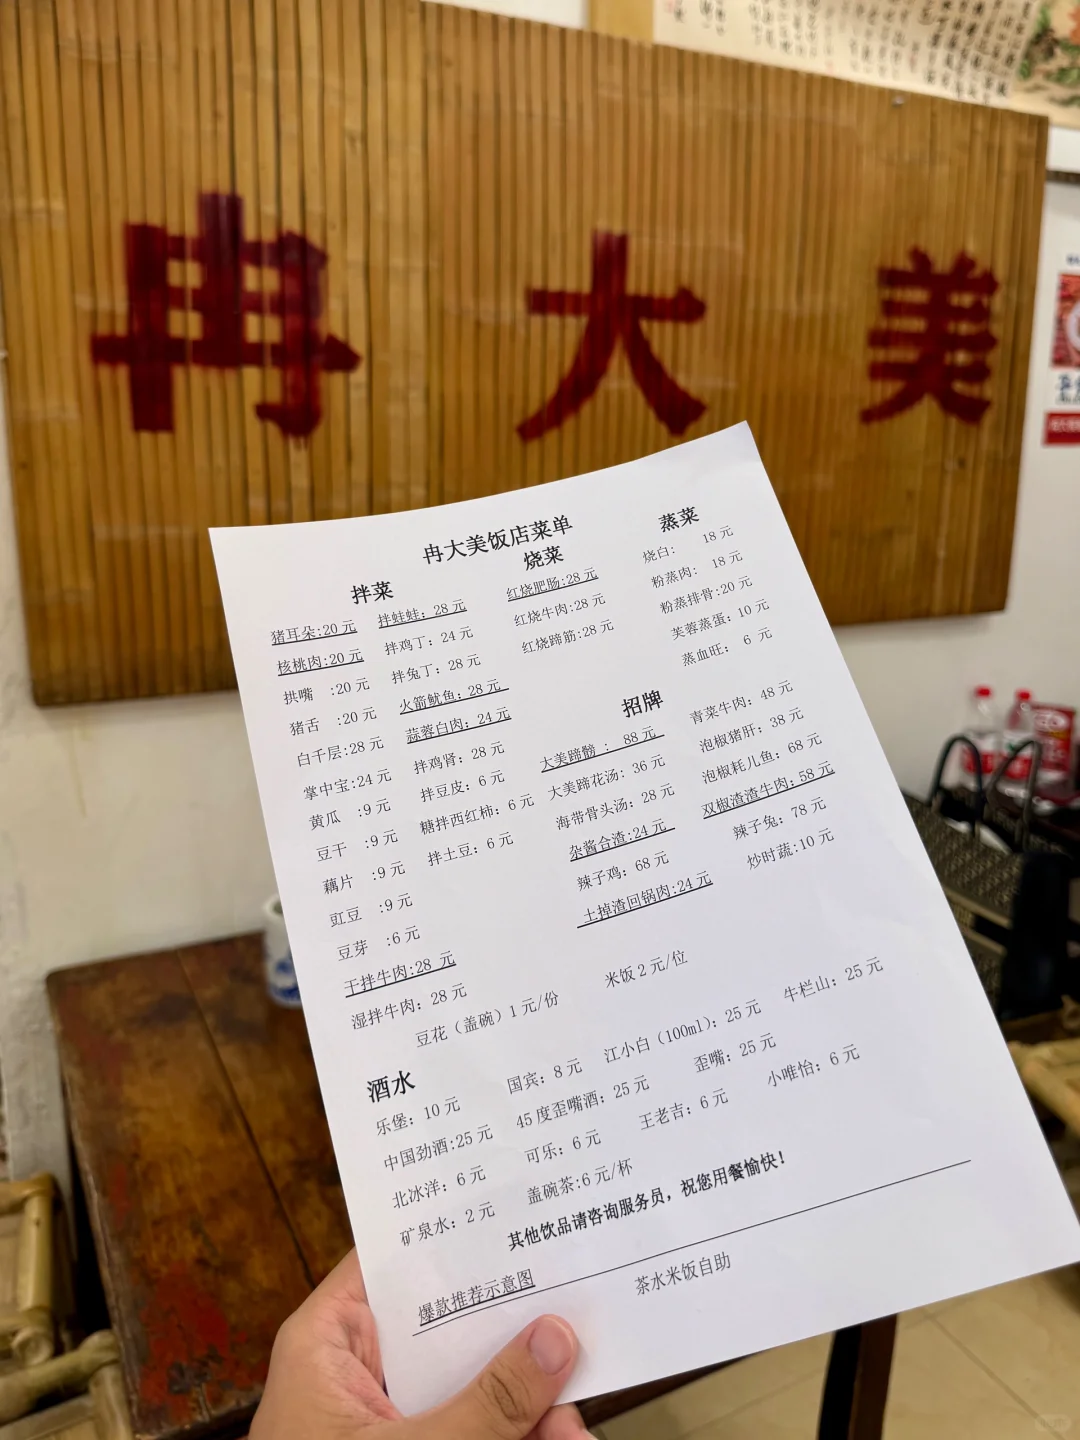 冉大美
冉大美饭店菜单
拌菜
猪耳朵:20元
核桃肉:20元
拱嘴 :20元
猪舌 :20元
白千层:28元
掌中宝:24元
黄瓜 :9元
豆干 :9元
藕片 :9元
豇豆 :9元
豆芽 :6元
干拌牛肉:28 元
湿拌牛肉: 28元
拌蛙蛙: 28元
拌鸡丁: 24元
拌兔丁: 28元
火箭鱿鱼: 28元
蒜蓉白肉: 24元
拌鸡肾: 28元
拌豆皮: 6元
糖拌西红柿: 6元
拌土豆: 6元
烧菜
红烧肥肠:28元
红烧牛肉:28元
红烧蹄筋:28元
蒸菜
烧白: 18元
粉蒸肉: 18元
粉蒸排骨:20元
芙蓉蒸蛋: 10元
蒸血旺: 6 元
招牌
大美蹄髈 : 88元
大美蹄花汤: 36元
海带骨头汤: 28元
杂酱合渣:24元
辣子鸡: 68元
土掉渣回锅肉:24元
青菜牛肉: 48元
泡椒猪肝: 38元
泡椒耗儿鱼: 68元
双椒渣渣牛肉: 58元
辣子兔: 78元
炒时蔬:10元
豆花(盖碗)1元/份
米饭2元/位
酒水
乐堡: 10元
国宾: 8元
江小白(100ml): 25元
牛栏山: 25元
中国劲酒:25元
45度歪嘴酒: 25元
歪嘴: 25元
北冰洋: 6元
可乐: 6元
王老吉: 6元
小唯怡: 6元
矿泉水: 2元
盖碗茶:6元/杯
其他饮品请咨询服务员,祝您用餐愉快!
爆款推荐示意图
茶水米饭自助